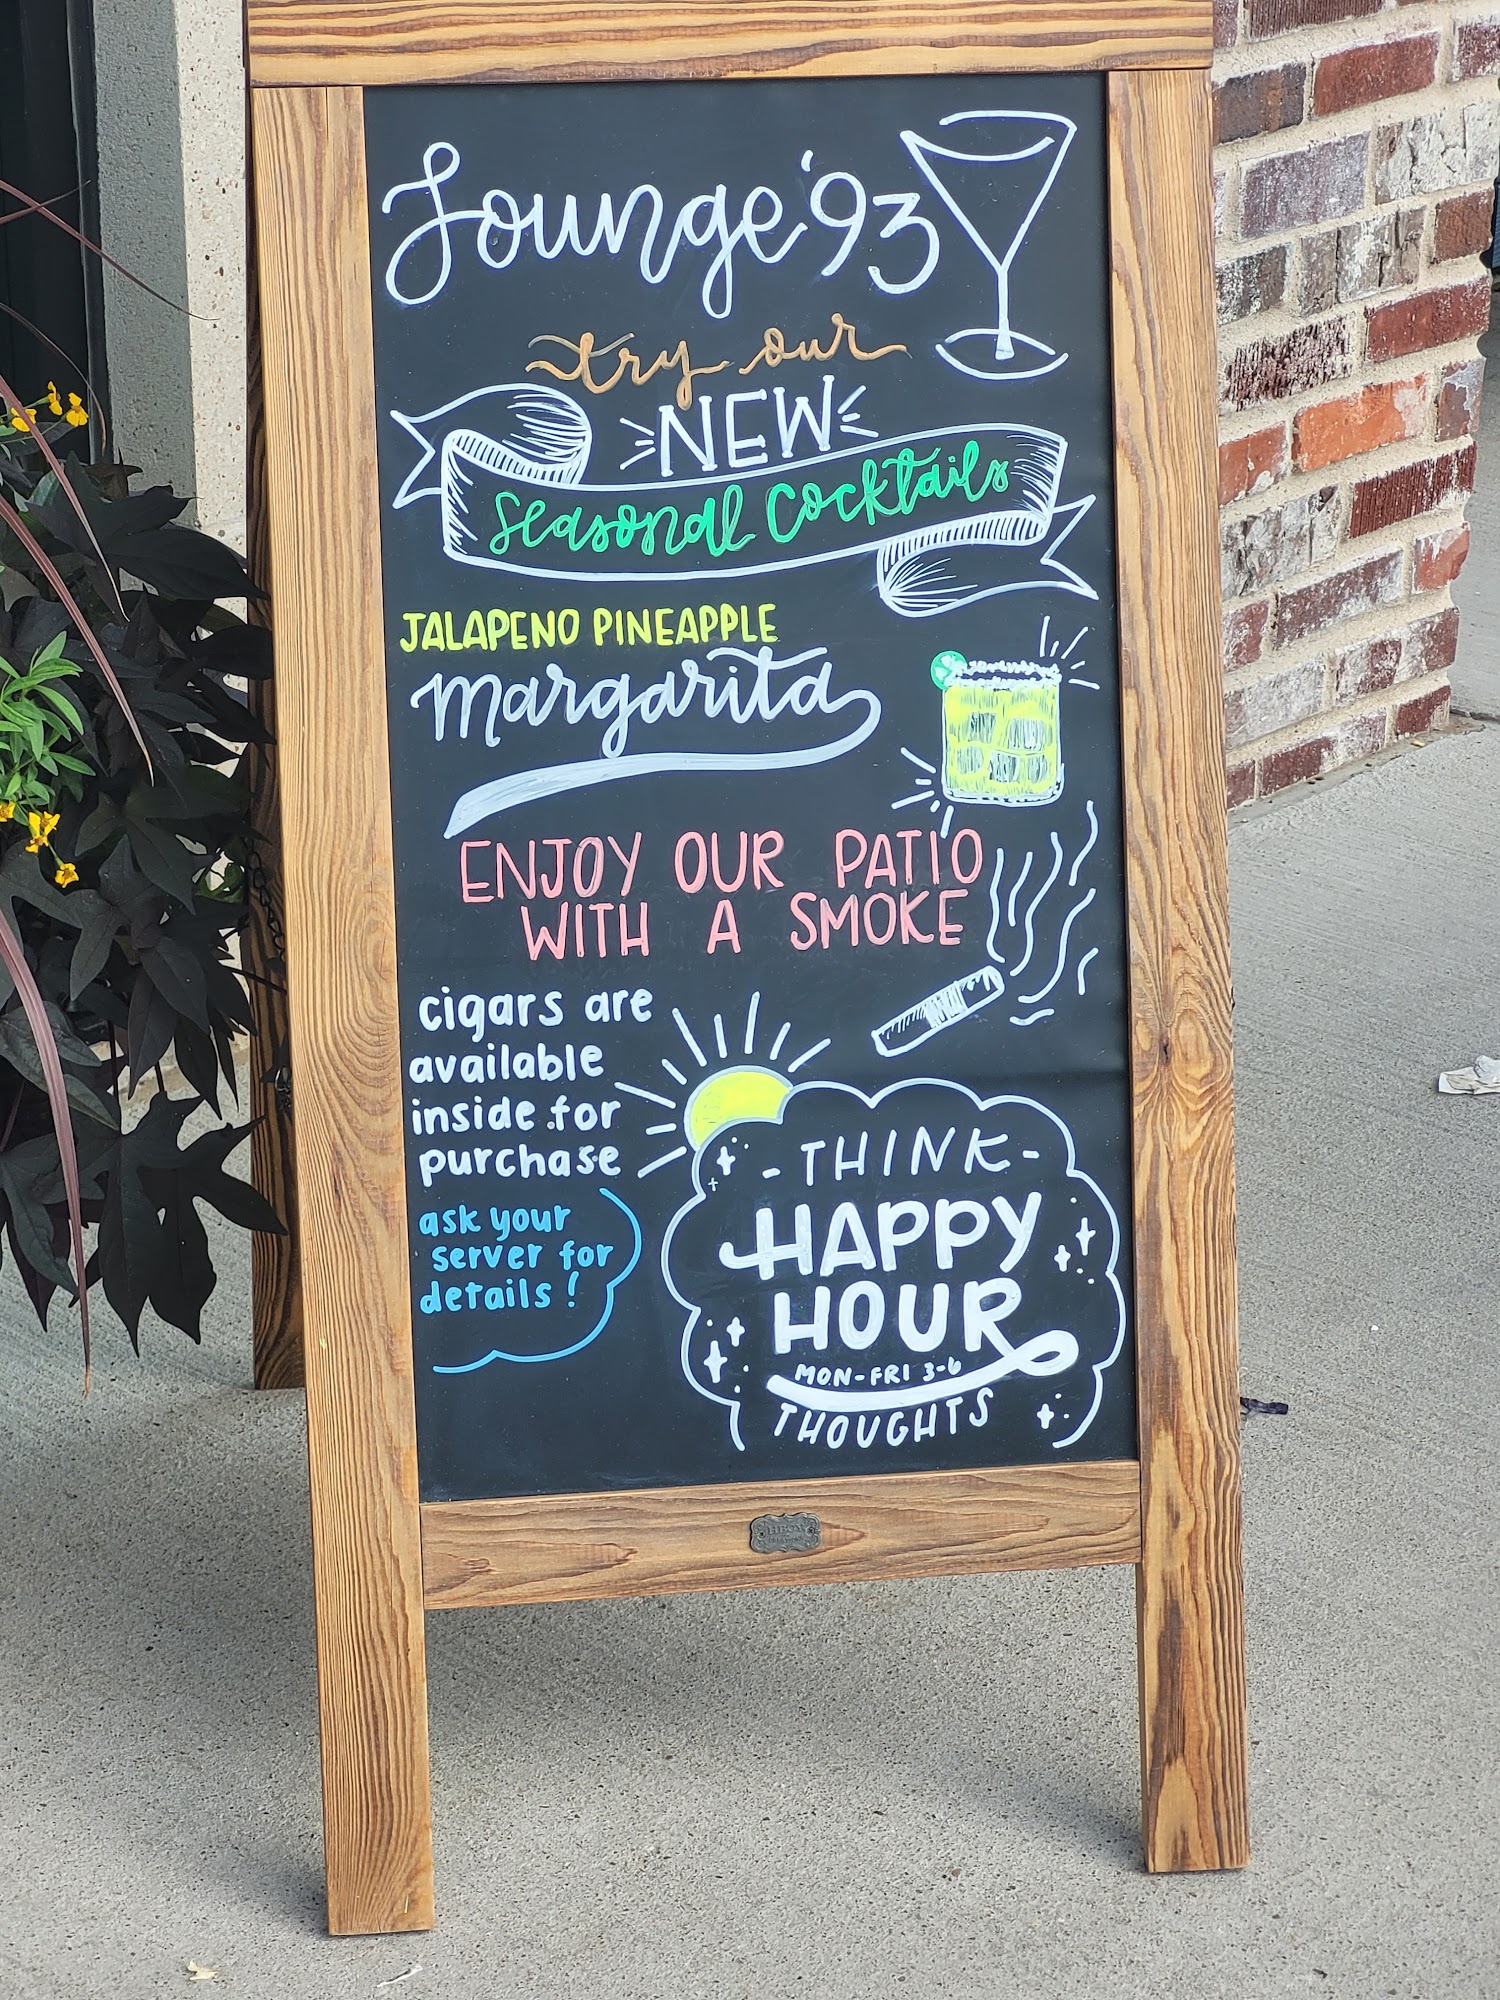 Lounge '93
try our
NEW
seasonal cocktails
JALAPENO PINEAPPLE
margarita
ENJOY OUR PATIO
WITH A SMOKE
cigars are
available
inside for
purchase
ask your
server for
details!
-THINK-
HAPPY
HOUR
MON-FRI 3-6
THOUGHTS